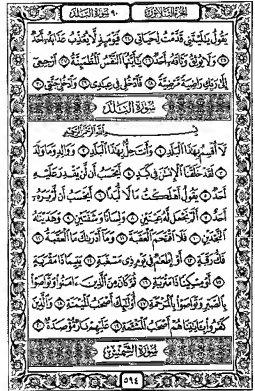 الجزء الثلاثون ٩٠ سورة البلد
يَقُولُ يَٰلَيْتَنِى قَدَّمْتُ لِحَيَاتِى ٢٤ فَيَوْمَئِذٍ لَّا يُعَذِّبُ عَذَابَهُۥٓ أَحَدٌ
٢٥ وَلَا يُوثِقُ وَثَاقَهُۥٓ أَحَدٌ ٢٦ يَٰٓأَيَّتُهَا ٱلنَّفْسُ ٱلْمُطْمَئِنَّةُ ٢٧ ٱرْجِعِىٓ
إِلَىٰ رَبِّكِ رَاضِيَةً مَّرْضِيَّةً ٢٨ فَٱدْخُلِى فِى عِبَٰدِى ٢٩ وَٱدْخُلِى جَنَّتِى ٣٠
سُورَةُ البَلَدِ
بِسْمِ ٱللَّهِ ٱلرَّحْمَٰنِ ٱلرَّحِيمِ
لَآ أُقْسِمُ بِهَٰذَا ٱلْبَلَدِ ١ وَأَنتَ حِلٌّۢ بِهَٰذَا ٱلْبَلَدِ ٢ وَوَالِدٍ وَمَا وَلَدَ
٣ لَقَدْ خَلَقْنَا ٱلْإِنسَٰنَ فِى كَبَدٍ ٤ أَيَحْسَبُ أَن لَّن يَقْدِرَ عَلَيْهِ
أَحَدٌ ٥ يَقُولُ أَهْلَكْتُ مَالًا لُّبَدًا ٦ أَيَحْسَبُ أَن لَّمْ يَرَهُۥٓ
أَحَدٌ ٧ أَلَمْ نَجْعَل لَّهُۥ عَيْنَيْنِ ٨ وَلِسَانًا وَشَفَتَيْنِ ٩ وَهَدَيْنَٰهُ
ٱلنَّجْدَيْنِ ١٠ فَلَا ٱقْتَحَمَ ٱلْعَقَبَةَ ١١ وَمَآ أَدْرَىٰكَ مَا ٱلْعَقَبَةُ ١٢
فَكُّ رَقَبَةٍ ١٣ أَوْ إِطْعَٰمٌ فِى يَوْمٍ ذِى مَسْغَبَةٍ ١٤ يَتِيمًا ذَا مَقْرَبَةٍ
١٥ أَوْ مِسْكِينًا ذَا مَتْرَبَةٍ ١٦ ثُمَّ كَانَ مِنَ ٱلَّذِينَ ءَامَنُوا۟ وَتَوَاصَوْا۟
بِٱلصَّبْرِ وَتَوَاصَوْا۟ بِٱلْمَرْحَمَةِ ١٧ أُو۟لَٰٓئِكَ أَصْحَٰبُ ٱلْمَيْمَنَةِ ١٨ وَٱلَّذِينَ
كَفَرُوا۟ بِـَٔايَٰتِنَا هُمْ أَصْحَٰبُ ٱلْمَشْـَٔمَةِ ١٩ عَلَيْهِمْ نَارٌ مُّؤْصَدَةٌۢ ٢٠
سُورَةُ الشَّمْسِ
٥٩٤